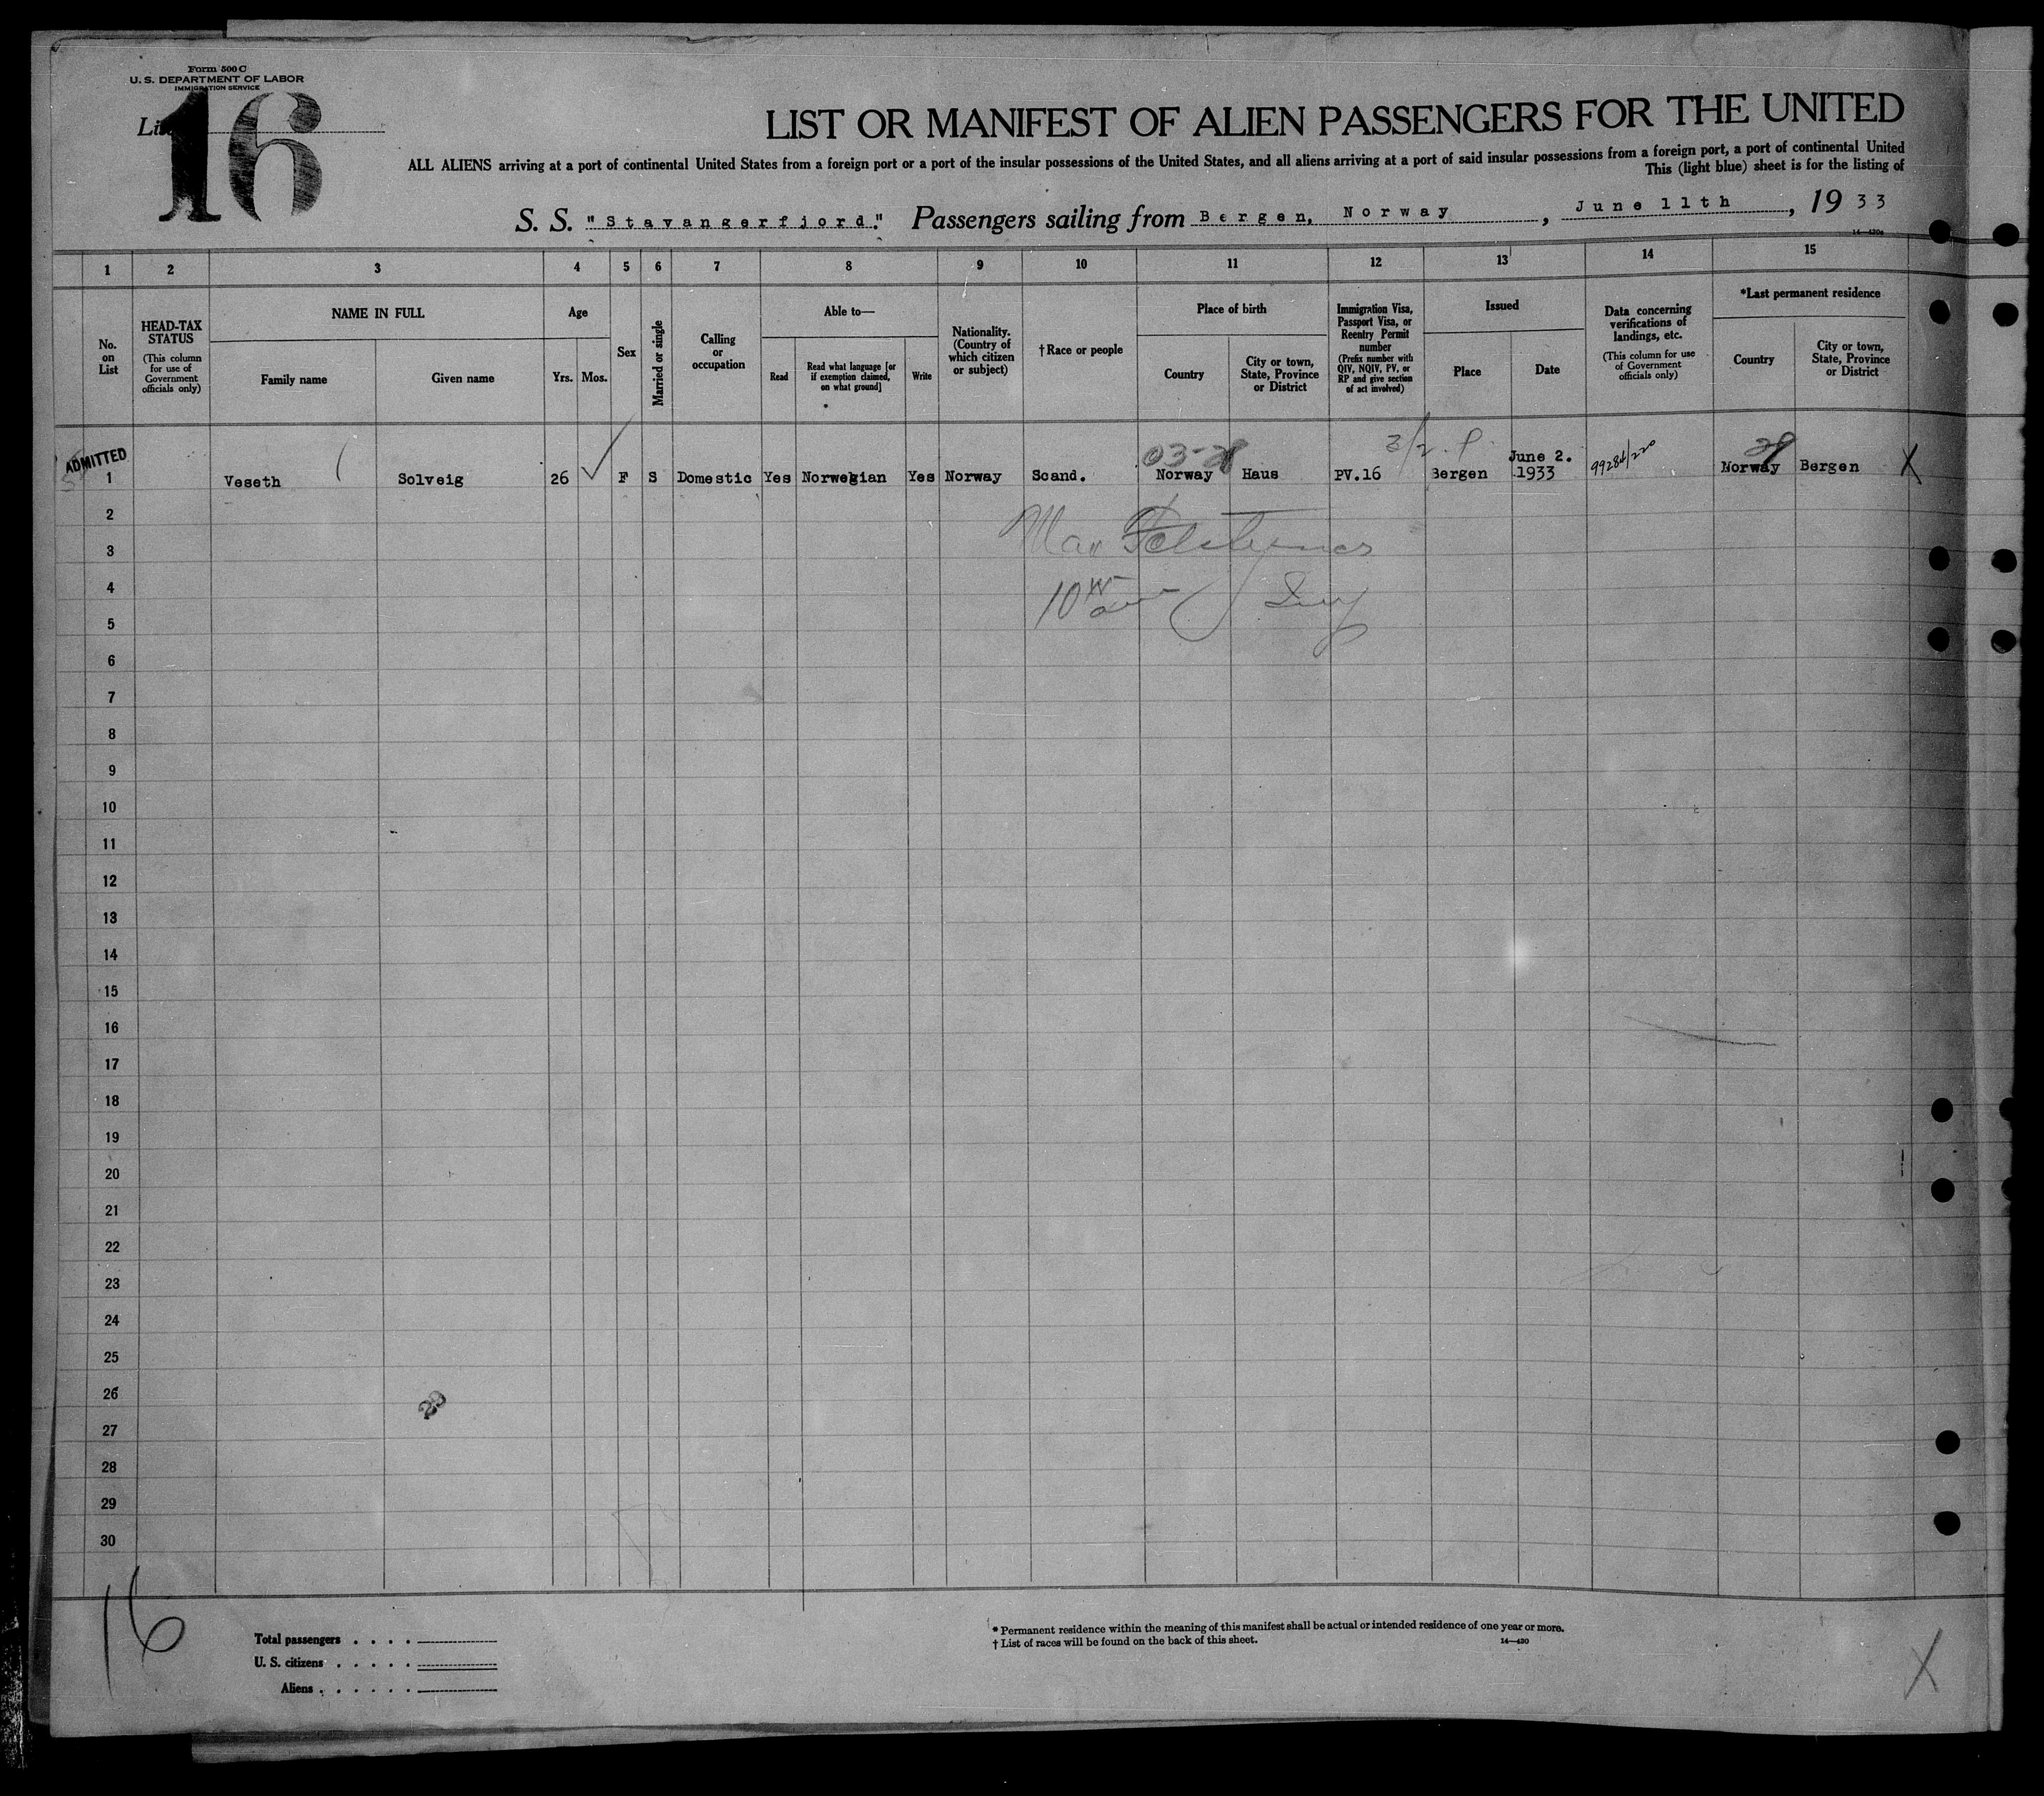 Form 500 C
U. S. DEPARTMENT OF LABOR
IMMIGRATION SERVICE
List 16
LIST OR MANIFEST OF ALIEN PASSENGERS FOR THE UNITED
ALL ALIENS arriving at a port of continental United States from a foreign port or a port of the insular possessions of the United States, and all aliens arriving at a port of said insular possessions from a foreign port, a port of continental United
This (light blue) sheet is for the listing of
S. S. "Stavangerfjord." Passengers sailing from Bergen, Norway, June 11th, 1933
1 2 3 4 5 6 7 8 9 10 11 12 13 14 15
No. on List
HEAD-TAX STATUS
(This column for use of Government officials only)
NAME IN FULL
Family name
Given name
Age
Yrs. Mos.
Sex
Married or single
Calling or occupation
Able to—
Read
Read what language [or if exemption claimed, on what ground]
Write
Nationality. (Country of which citizen or subject)
†Race or people
Place of birth
Country
City or town, State, Province or District
Immigration Visa, Passport Visa, or Reentry Permit number
(Prefix number with QIV, NQIV, PV, or RP and give section of act involved)
Issued
Place
Date
Data concerning verifications of landings, etc.
(This column for use of Government officials only)
*Last permanent residence
Country
City or town, State, Province or District
ADMITTED
03-28
1 Veseth Solveig 26 F S Domestic Yes Norwegian Yes Norway Scand. Norway Haus PV.16 Bergen June 2. 1933 Norway Bergen X
2
3
4
5
6
7
8
9
10
11
12
13
14
15
16
17
18
19
20
21
22
23
24
25
26
27
28
29
30
16
Total passengers . . . .
U. S. citizens . . . . .
Aliens . . . . . .
* Permanent residence within the meaning of this manifest shall be actual or intended residence of one year or more.
† List of races will be found on the back of this sheet.
14—430
X